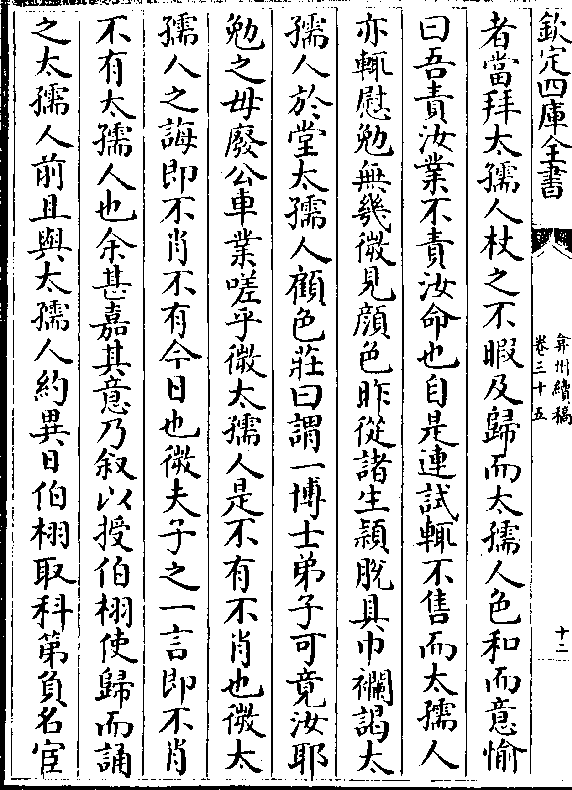 欽定四庫全書
弇州續稿
卷三十五
十二
者當拜太孺人杖之不暇及歸而太孺人色和而意愉
曰吾責汝業不責汝命也自是連試輒不售而太孺人
亦輒慰勉無幾微見顔色昨從諸生穎脫具巾襴謁太
孺人於堂太孺人顧色莊曰謂一博士弟子可竟汝耶
勉之毋廢公車業嗟乎微太孺人是不有不肖也微太
孺人之誨即不肖不有今日也微夫子之一言即不肖
不有太孺人也余甚嘉其意乃叙以授伯栩使歸而誦
之太孺人前且與太孺人約異日伯栩取科第負名宦